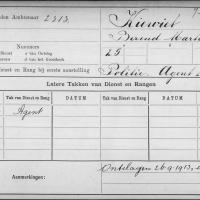 den Ambtenaar 2313.
Kiewiet
Berend Marti
Nummers
Dienst
van Ontslag
ienst en Rang bij eerste aanstelling
Politie. Agent
Latere Takken van Dienst en Rangen
Tak van Dienst en Rang DATUM Tak van Dienst en Rang DATUM
Agent
Ontslagen 26-9-1913,
Aanmerkingen: